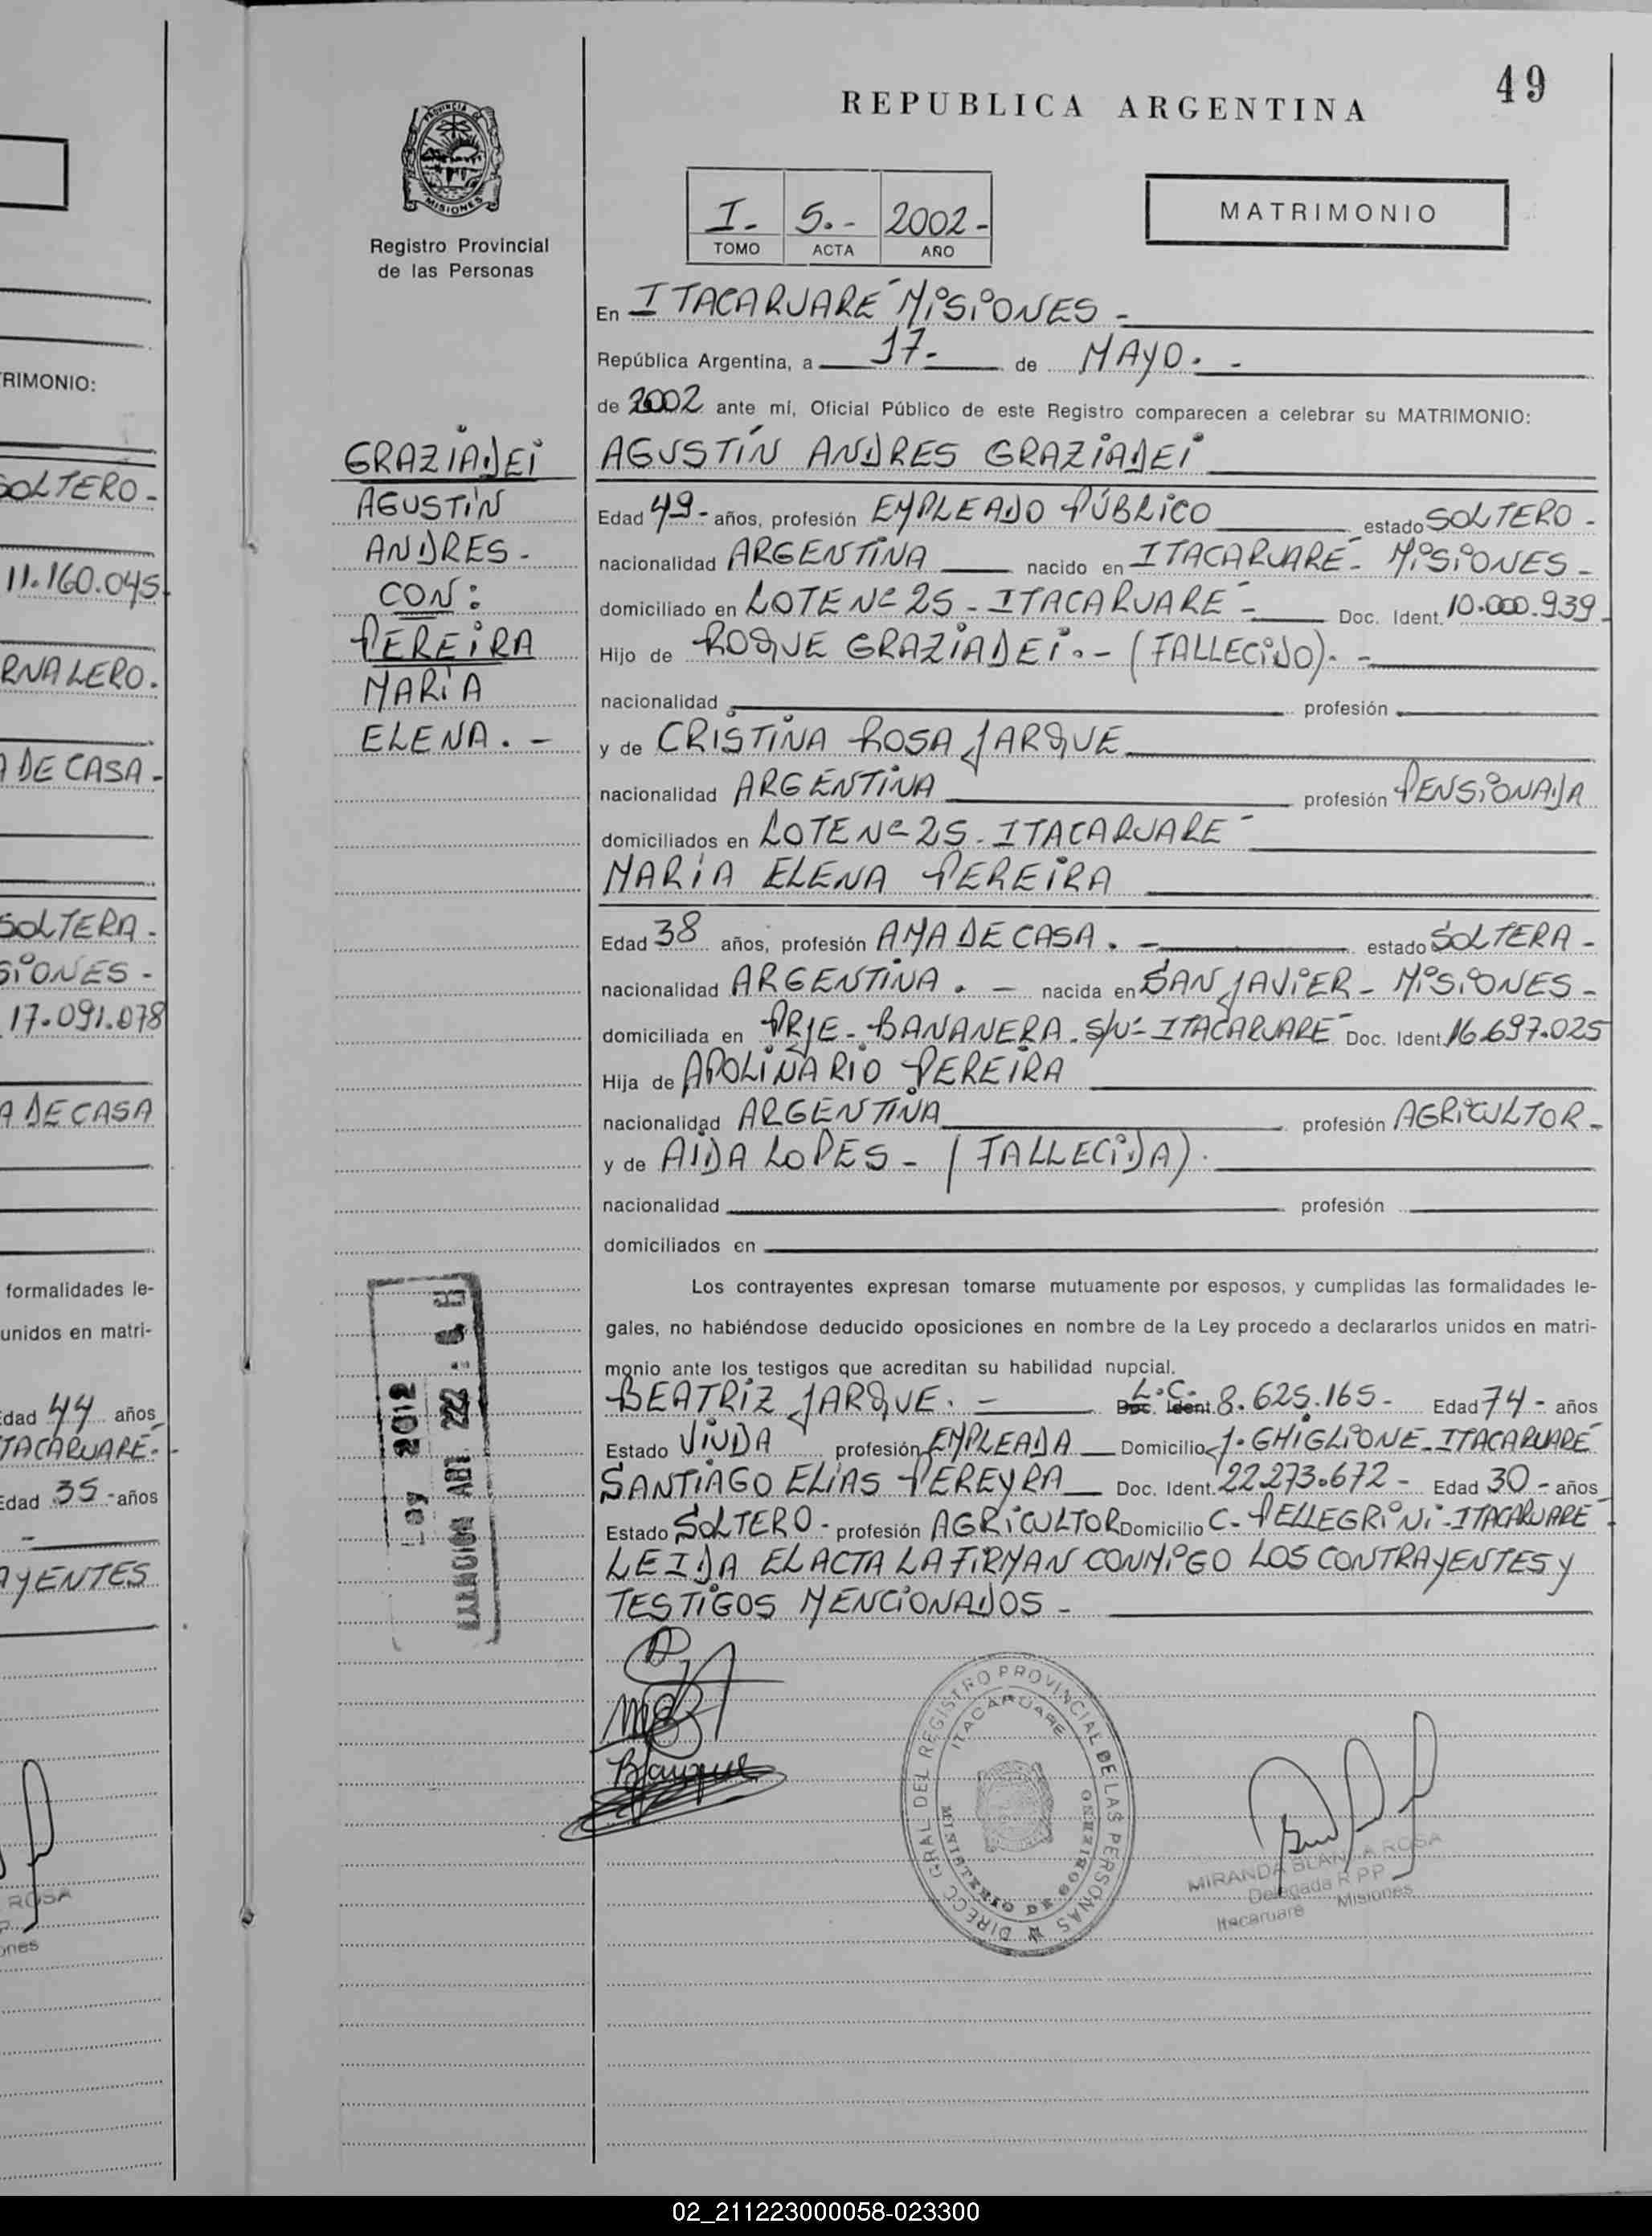 RIMONIO:
SOLTERO-
11.160.045
RNALERO.
A DE CASA-
SOLTERA-
SIONES-
17.091.078
A DE CASA
formalidades le-
unidos en matri-
Edad 44 años
ITACARUARÉ.-
Edad 35-años
AYENTES
ROSA
ones
49
REPUBLICA ARGENTINA
PROVINCIA
MISIONES
Registro Provincial
de las Personas
I- 5.- 2002-
TOMO ACTA AÑO
MATRIMONIO
En ITACARUARE MISIONES-
República Argentina, a 17- de MAYO.-
de 2002 ante mí, Oficial Público de este Registro comparecen a celebrar su MATRIMONIO:
GRAZIADEI
AGUSTÍN
ANDRES-
CON:
PEREIRA
MARÍA
ELENA.-
AGUSTÍN ANDRES GRAZIADEI
Edad 49- años, profesión EMPLEADO PÚBLICO estado SOLTERO-
nacionalidad ARGENTINA nacido en ITACARUARÉ- MISIONES-
domiciliado en LOTE Nº 25- ITACARUARE- Doc. Ident. 10.000.939-
Hijo de ROQUE GRAZIADEI.- (FALLECIDO).-
nacionalidad profesión
y de CRISTINA ROSA JARQUE
nacionalidad ARGENTINA profesión PENSIONADA
domiciliados en LOTE Nº 25- ITACARUARE
MARÍA ELENA PEREIRA
Edad 38 años, profesión AMA DE CASA.- estado SOLTERA-
nacionalidad ARGENTINA.- nacida en SAN JAVIER- MISIONES-
domiciliada en PRJE- BANANERA- S/Nº- ITACARUARE Doc. Ident. 16.697.025
Hija de APOLINARIO PEREIRA
nacionalidad ARGENTINA profesión AGRICULTOR-
y de AIDA LOPES- (FALLECIDA).
nacionalidad profesión
domiciliados en
Los contrayentes expresan tomarse mutuamente por esposos, y cumplidas las formalidades le-
gales, no habiéndose deducido oposiciones en nombre de la Ley procedo a declararlos unidos en matri-
monio ante los testigos que acreditan su habilidad nupcial.
BEATRIZ JARQUE.- L.C. Doc. Ident. 8.625.165- Edad 74- años
Estado VIUDA profesión EMPLEADA Domicilio J. GHIGLIONE- ITACARUARÉ
SANTIAGO ELÍAS PEREYRA Doc. Ident. 22.273.672- Edad 30- años
Estado SOLTERO- profesión AGRICULTOR Domicilio C- PELLEGRINI- ITACARUARE
LEIDA EL ACTA LA FIRMAN CONMIGO LOS CONTRAYENTES Y
TESTIGOS MENCIONADOS-
2012
BJarque
DIRECC GRAL. DEL REGISTRO PROVINCIAL DE LAS PERSONAS
ITACARUARE
MINISTERIO DE GOBIERNO
MIRANDA BLANCA ROSA
Delegada R PP
Itacaruaré Misiones
02_211223000058-023300